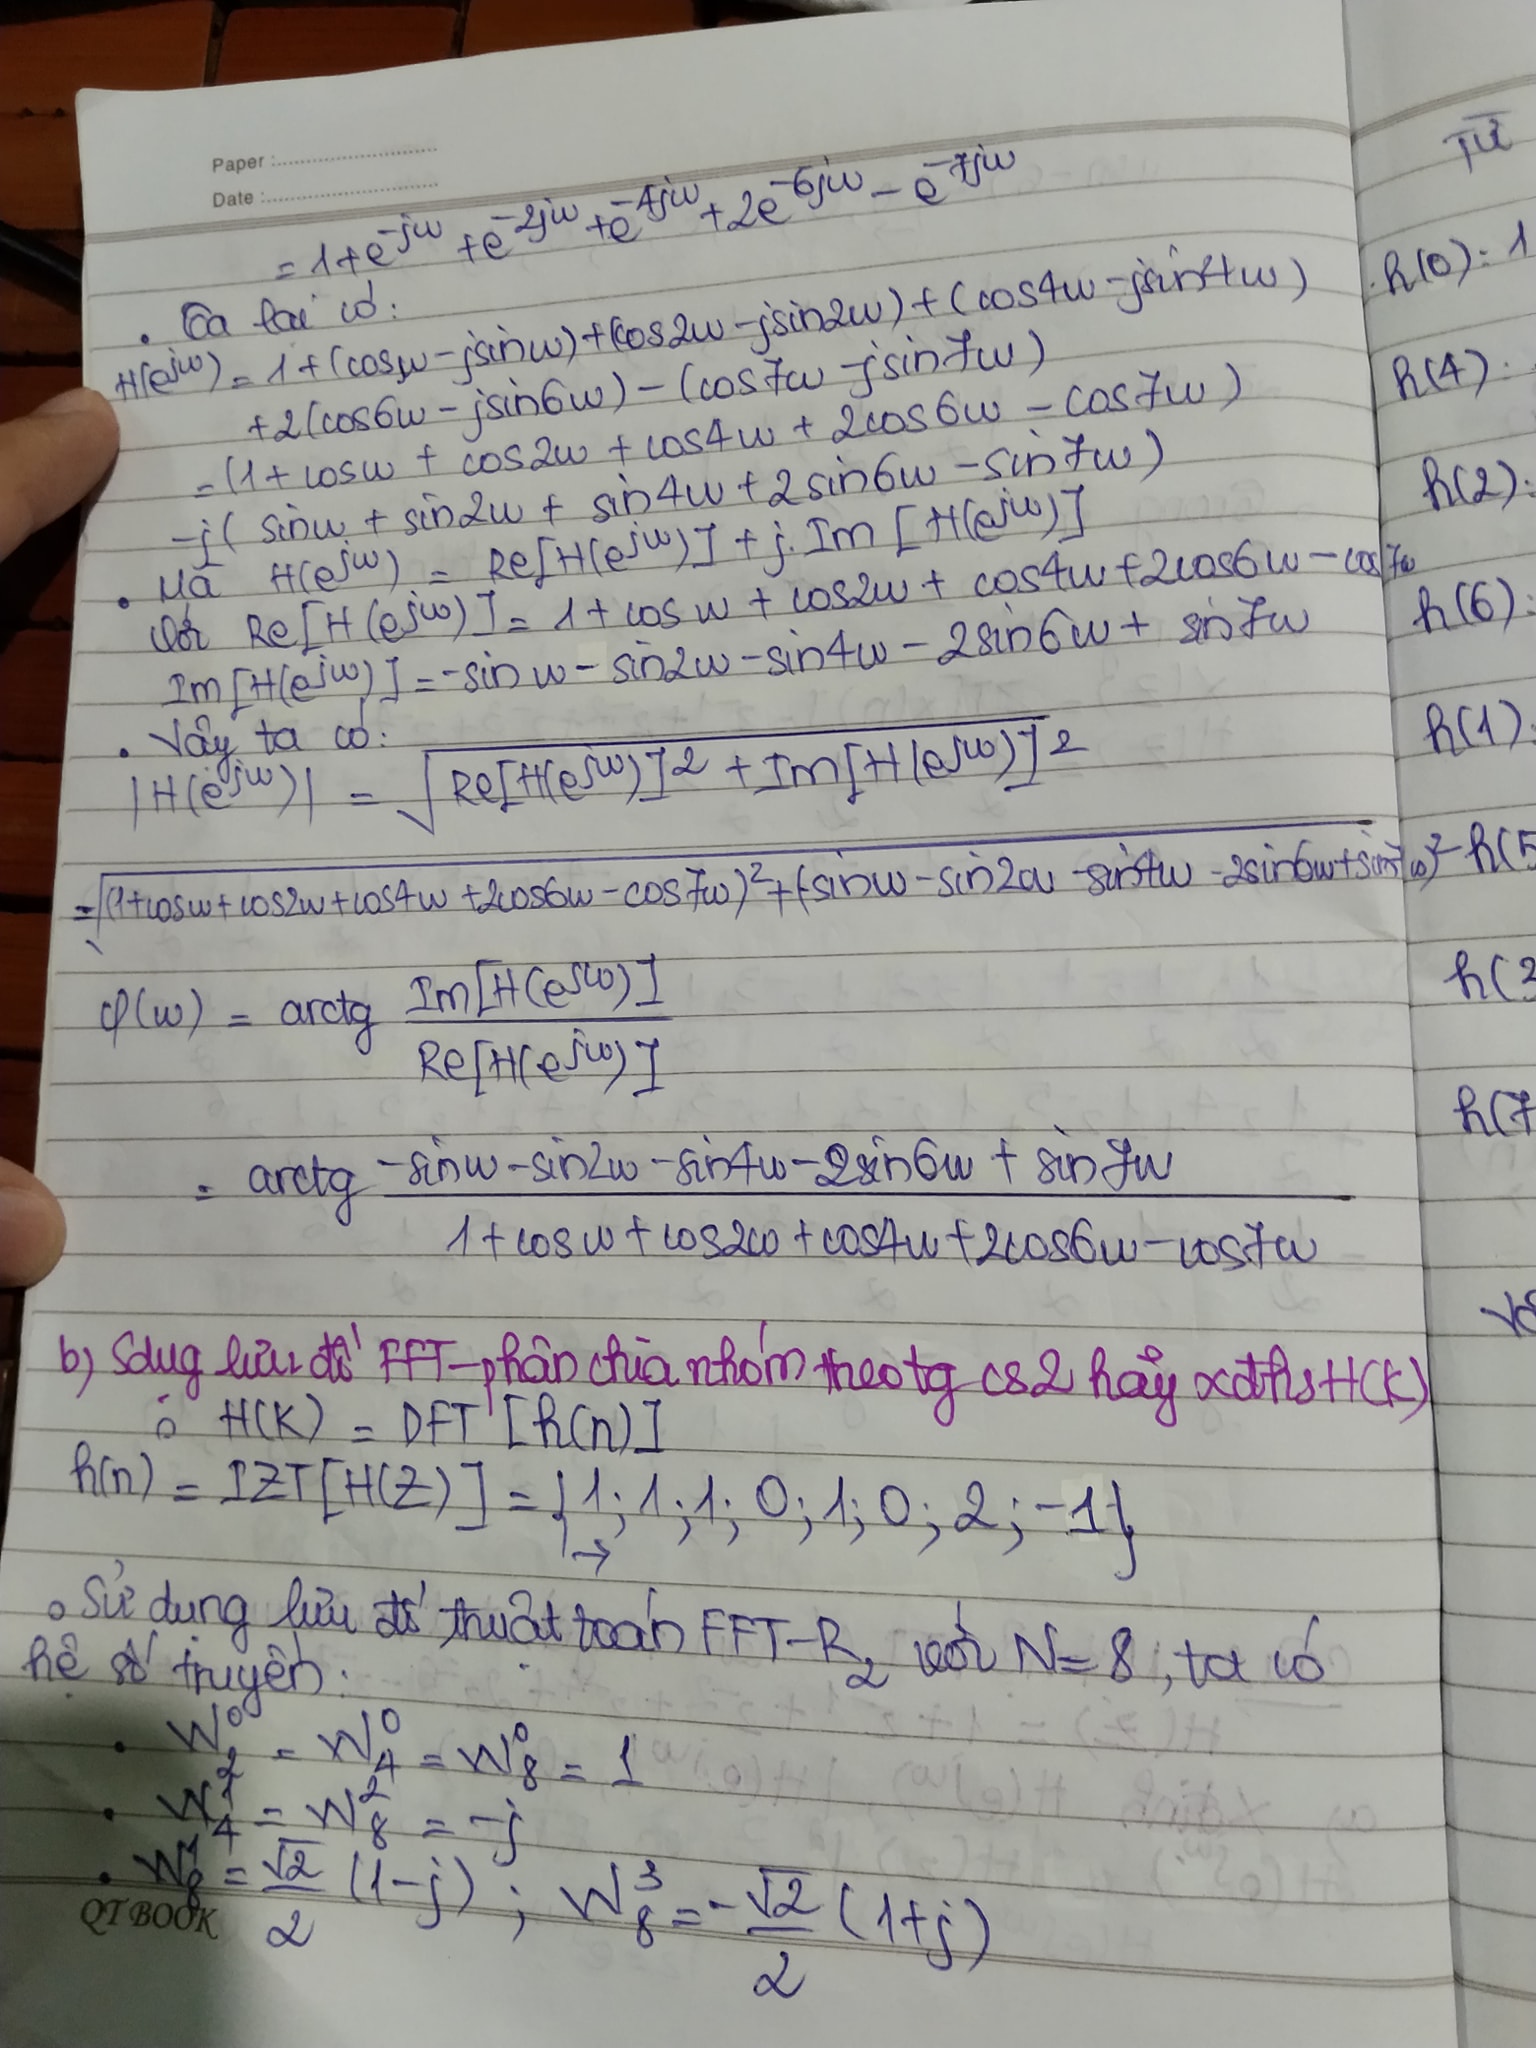 Paper :
Date :
= 1+e^-jω + e^-2jω + e^-4jω + 2e^-6jω - e^-7jω
. Ta lại có:
H(e^jω) = 1+(cosω - jsinω)+(cos2ω - jsin2ω)+(cos4ω - jsin4ω)
+2(cos6ω - jsin6ω) - (cos7ω - jsin7ω)
= (1+cosω + cos2ω + cos4ω + 2cos6ω - cos7ω)
-j( sinω + sin2ω + sin4ω + 2sin6ω - sin7ω)
. Mà H(e^jω) = Re[H(e^jω)] + j.Im[H(e^jω)]
Với Re[H(e^jω)] = 1+cosω + cos2ω + cos4ω + 2cos6ω - cos7ω
Im[H(e^jω)] = -sinω - sin2ω - sin4ω - 2sin6ω + sin7ω
. Vậy ta có:
|H(e^jω)| = √(Re[H(e^jω)]² + Im[H(e^jω)]²)
= √((1+cosω+cos2ω+cos4ω+2cos6ω-cos7ω)²+(-sinω-sin2ω-sin4ω-2sin6ω+sin7ω)²)
φ(ω) = arctg Im[H(e^jω)] / Re[H(e^jω)]
= arctg (-sinω-sin2ω-sin4ω-2sin6ω+sin7ω) / (1+cosω+cos2ω+cos4ω+2cos6ω-cos7ω)
b) Sdụg lưu đồ FFT-phân chia nhóm theo tg cs2 hãy xđ hs H(K)
H(K) = DFT [h(n)]
h(n) = IZT[H(Z)] = {1; 1; 1; 0; 1; 0; 2; -1}
→
o Sử dụng lưu đồ thuật toán FFT-R₂ với N=8, ta có
hệ số truyền:
. W₂⁰ = W₄⁰ = W₈⁰ = 1
. W₄¹ = W₈² = -j
. W₈¹ = √2/2 (1-j) ; W₈³ = -√2/2 (1+j)
QT BOOK
Từ
h(0): 1
h(4):
h(2):
h(6):
h(1):
h(5
h(3
h(7